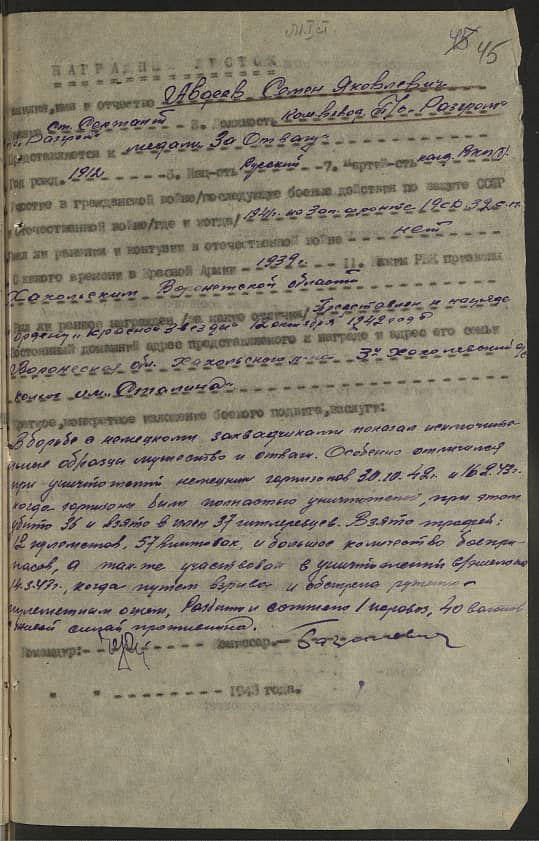 45
НАГРАДНОЙ ЛИСТОК
Фамилия, имя и отчество Авдеев Семен Яковлевич
Ст. Сержант 3. Должность Ком. взвод. п/о "Разгром"
"Разгром"
Представляется к медали За Отвагу
Год рожд. 1912 6. Нац-сть Русский 7. Партий-сть канд. ВКП(б)
Участие в гражданской войне/последующие боевые действия по защите СССР
и отечественной войне/где и когда/ 1941г. на Зап. фронте
Имел ли ранения и контузии в отечественной войне нет
С какого времени в Красной Армии 1939г. 11. Каким РВК призван
Хахольским Воронежской области
Чем ли ранее награжден /за какие отличия/ Представлен к награде
Ордену "Красной звезды" 12 октября 1942 года
Постоянный домашний адрес представляемого к награде и адрес его семьи
Воронежская обл. Хахольского р-на 3й Хохольский с/с
колхоз им. "Сталина"
Краткое, конкретное изложение боевого подвига, заслуги:
В борьбе с немецкими захватчиками показал исключите-
льные образцы мужества и отваги. Особенно отличился
при уничтожении немецких гарнизонов 30.10.42г. и 16.2.43г.
когда гарнизоны были полностью уничтожены, при этом
убито 36 и взято в плен 37 гитлеровцев. Взято трофей:
12 пулеметов, 57 винтовок, и большое количество боепри-
пасов, а так же участвовал в уничтожении эшелона
14.3.43г., когда путем взрыва и обстрела ружейно-
пулеметным огнем, разбито и сожжено 1 паровоз, 40 вагонов
с живой силой противника.
Командир: Комиссар.
" " 1943 года.